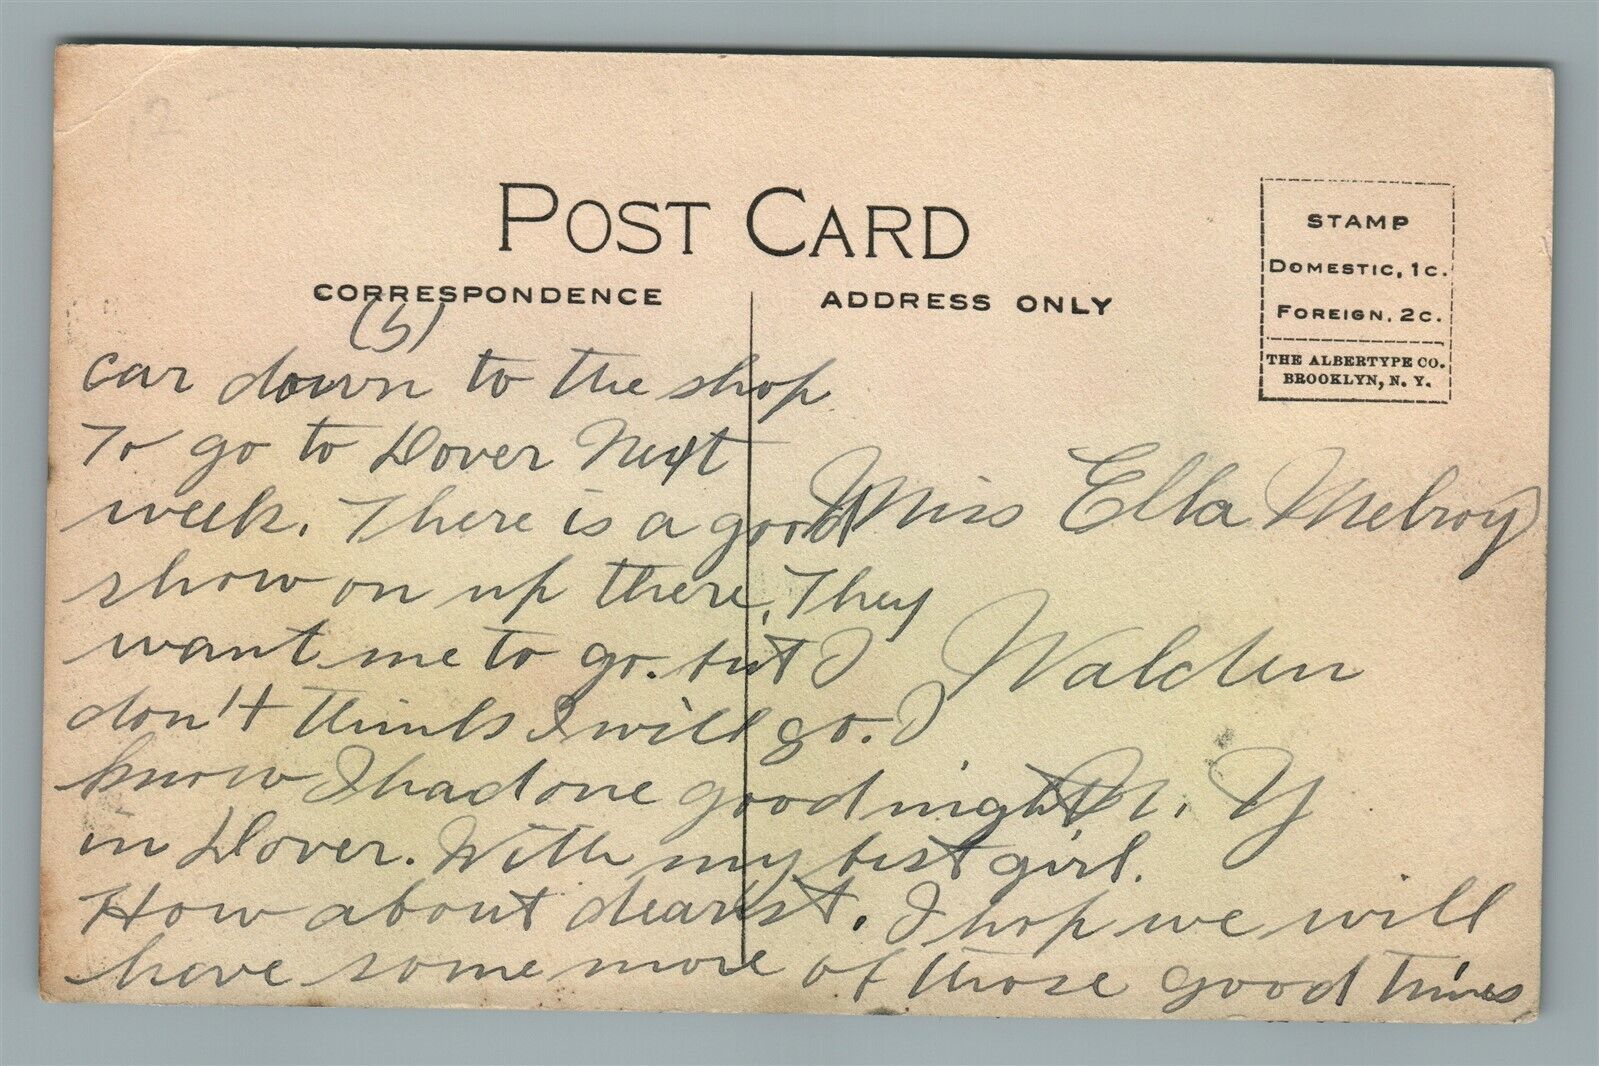 POST CARD
CORRESPONDENCE
ADDRESS ONLY
STAMP
DOMESTIC, 1C.
FOREIGN, 2C.
THE ALBERTYPE CO.
BROOKLYN, N. Y.
(5)
car down to the shop
To go to Dover Next
week. There is a good
show on up there. They
want me to go. but I
don't think I will go. I
know I had one good night
in Dover. With my best girl.
How about dearest. I hop we will
have some more of those good times
Miss Ella Melroy
Walden
N. Y